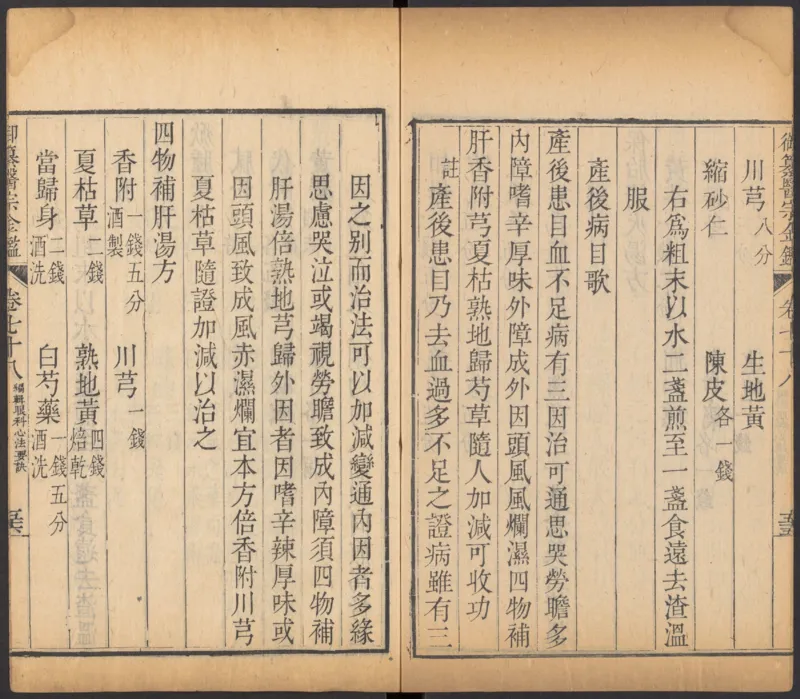 御纂醫宗金鑑 卷七十八
川芎八分 生地黃
縮砂仁 陳皮各一錢
右為粗末以水二盞煎至一盞食遠去渣溫
服
產後病目歌
產後患目血不足病有三因治可通思哭勞瞻多
內障嗜辛厚味外障成外因頭風風爛濕四物補
肝香附芎夏枯熟地歸芍草隨人加減可收功
註產後患目乃去血過多不足之證病雖有三
因之別而治法可以加減變通內因者多緣
思慮哭泣或竭視勞瞻致成內障須四物補
肝湯倍熟地芎歸外因者因嗜辛辣厚味或
因頭風致成風赤濕爛宜本方倍香附川芎
夏枯草隨證加減以治之
四物補肝湯方
香附一錢五分酒製 川芎一錢
夏枯草二錢 熟地黃四錢焙乾
當歸身二錢酒洗 白芍藥一錢五分酒洗
御纂醫宗金鑑 卷七十八 編輯眼科心法要訣